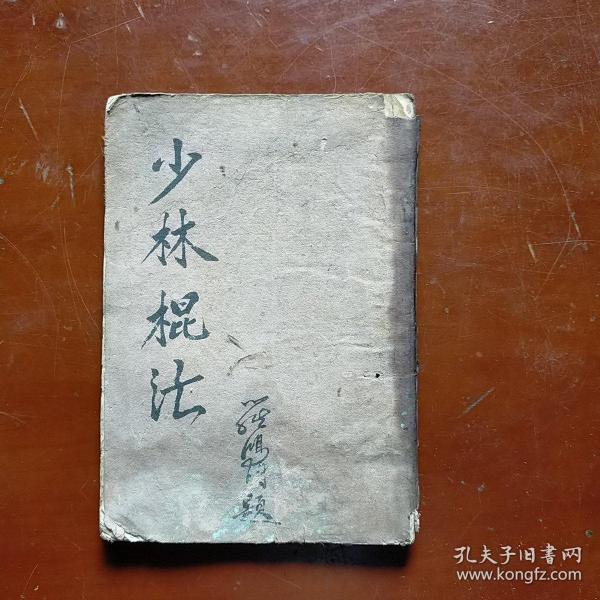 少林棍法
题
孔夫子旧書网
www.kongfz.com